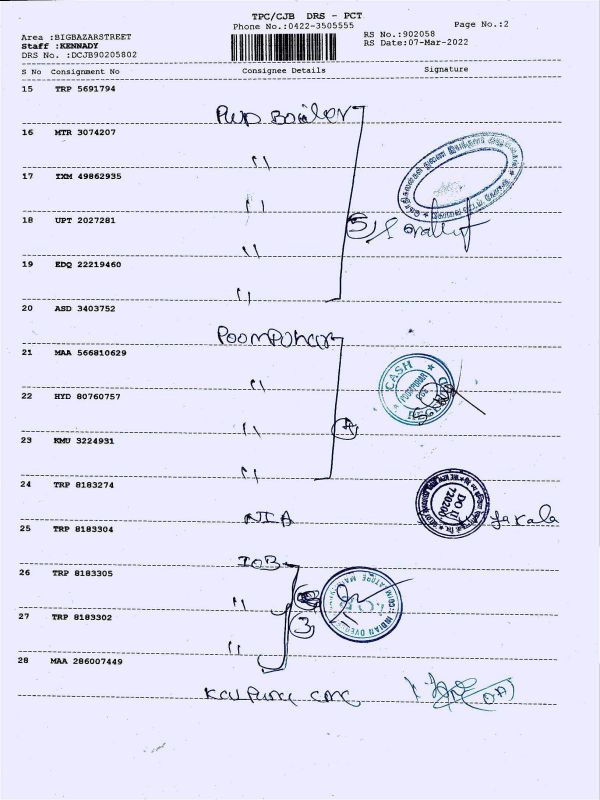 TPC/CJB DRS - PCT
Phone No.:0422-3505555
Page No.:2
Area :BIGBAZARSTREET
RS No.:902058
Staff :KENNADY
RS Date:07-Mar-2022
DRS No. :DCJB90205802
S No Consignment No Consignee Details Signature
15 TRP 5691794
PWD Boiler
16 MTR 3074207
"
17 IXM 49862935
"
18 UPT 2027281
5
"
19 EDQ 22219460
"
20 ASD 3403752
Poompuhar
21 MAA 566810629
CASH
POOMPUHAR
"
22 HYD 80760757
"
4
23 KMU 3224931
"
24 TRP 8183274
NIA
DO II
720200
25 TRP 8183304
IOB
26 TRP 8183305
INDIAN OVER
"
3
27 TRP 8183302
"
28 MAA 286007449